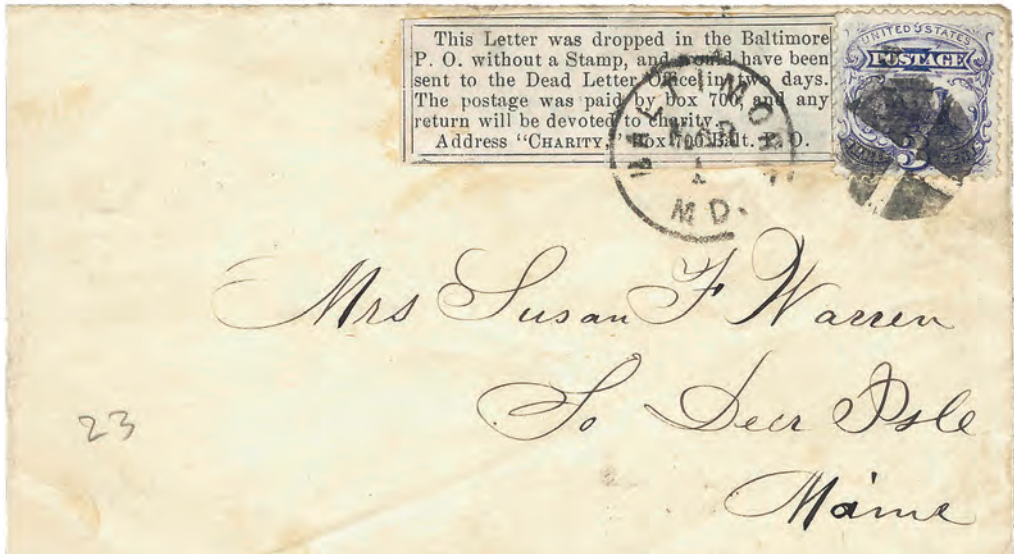 This Letter was dropped in the Baltimore
P. O. without a Stamp, and would have been
sent to the Dead Letter Office in two days.
The postage was paid by box 700, and any
return will be devoted to charity.
Address “CHARITY,” Box 700 Balt. P. O.
UNITED STATES
POSTAGE
3
CENTS
BALTIMORE
MD.
Mrs Susan F Warren
So Deer Isle
Maine
23